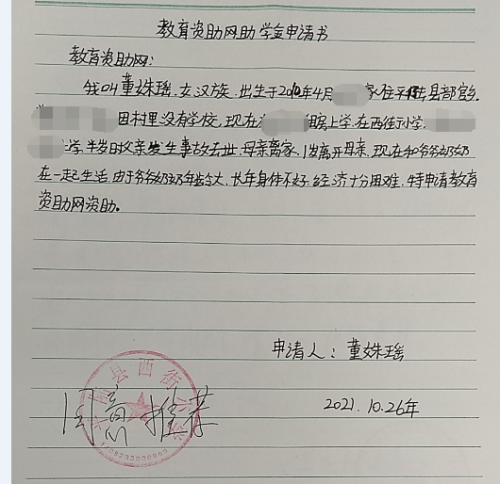 教育资助网助学金申请书
教育资助网:
我叫董姝瑶,女汉族.出生于20 年4月 家住平 县部 乡.
学 因村里没有学校,现在 上学.在西街小学.
学.半岁时父亲发生事故去世,母亲离家,1岁离开母亲,现在和爷爷奶奶
在一起生活,由于爷爷奶奶年龄大,长年身体不好,经济十分困难,特申请教育
资助网资助。
申请人:董姝瑶
2021.10.26年
县西街小学
同意推荐